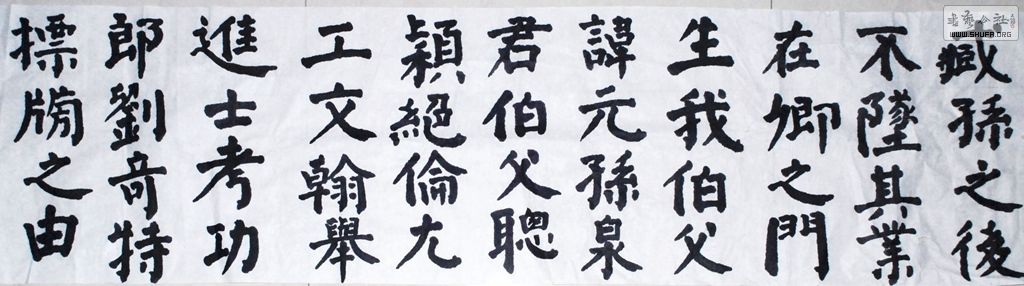 臧孫之後
不墜其業
在卿之門
生我伯父
諱元孫泉
君伯父聰
穎絕倫尤
工文翰舉
進士考功
郎劉奇特
標牓之由
WWW.SHUFA.ORG